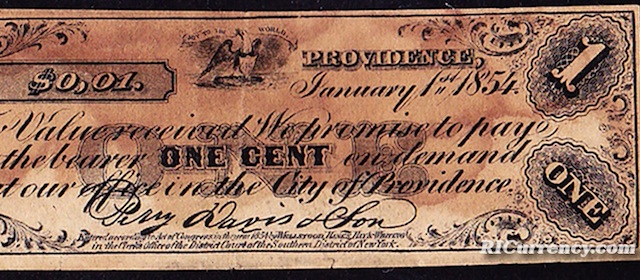 JOY TO THE WORLD
PROVIDENCE,
$0,01.
January 1st 1854.
1
Value received We promise to pay
the bearer ONE CENT on demand
at our office in the City of Providence.
ONE
ONE
Perry Davis & Son
Entered according to Act of Congress in the year 1854 by Wellstood, Hay & Whiting
in the Clerk's Office of the District Court of the Southern District of New York.
RICurrency.com